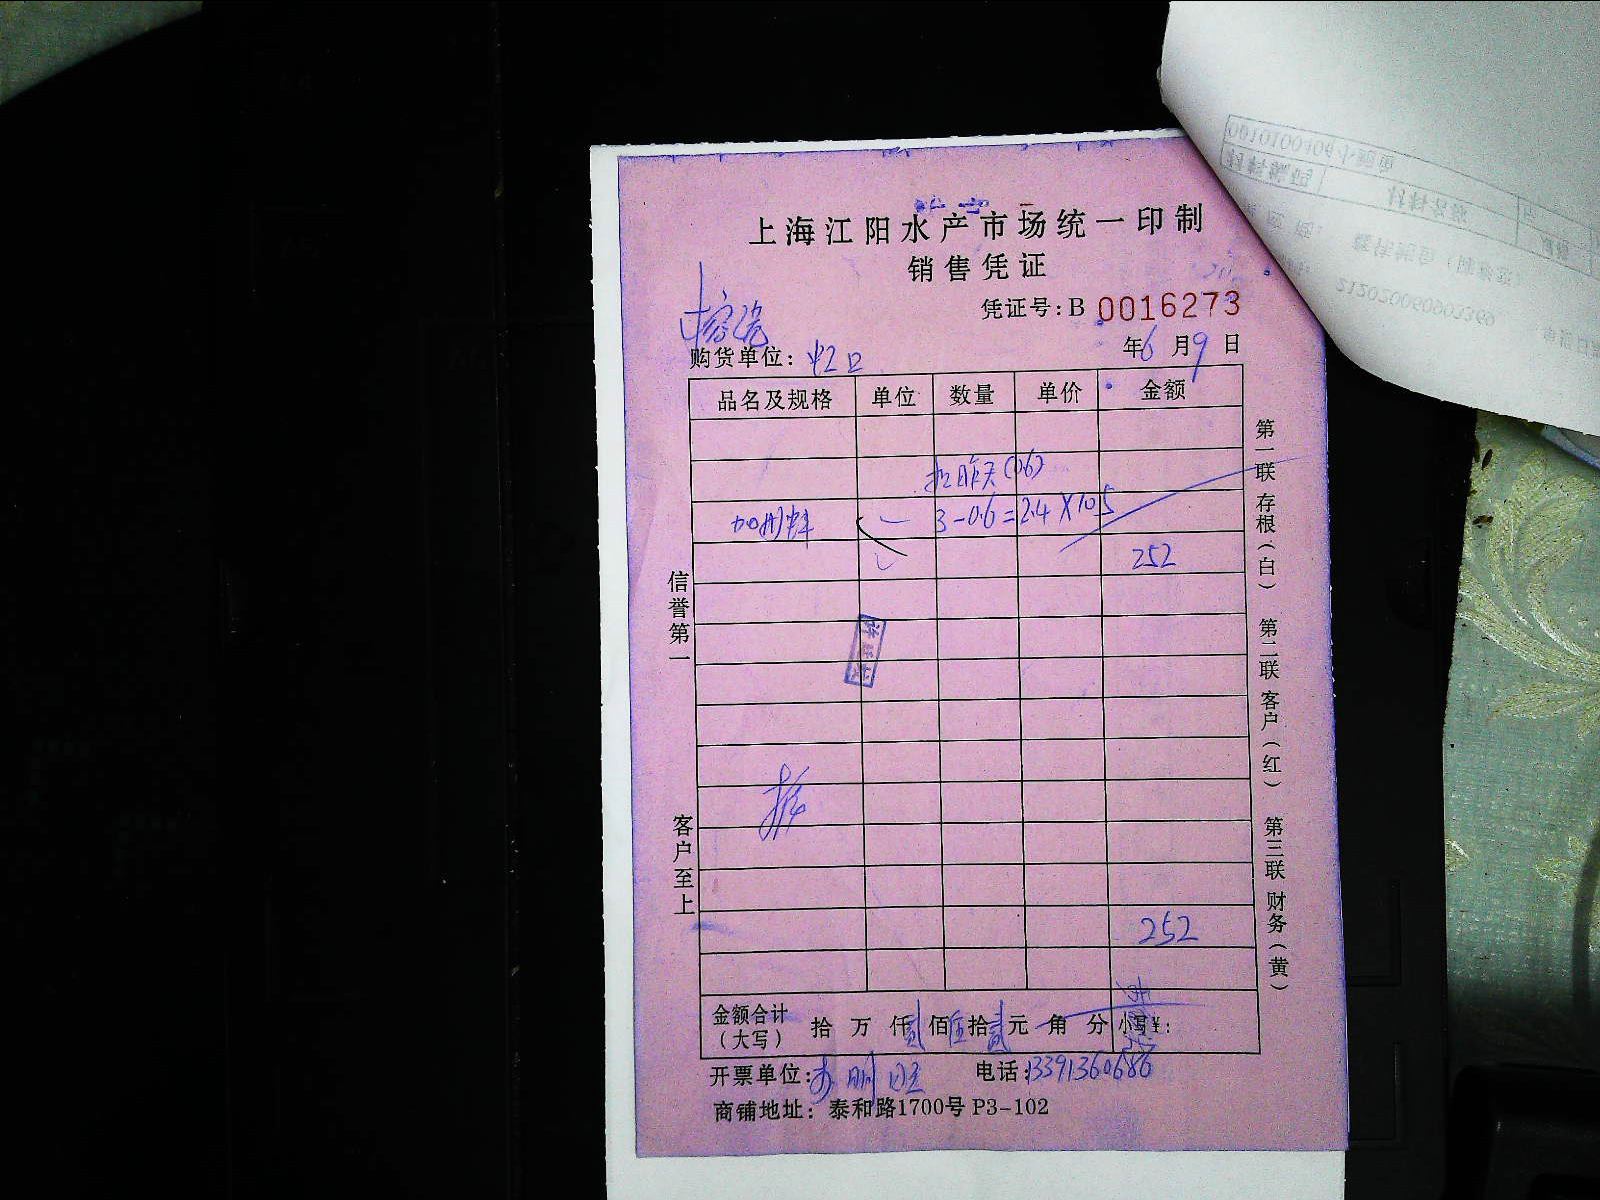 上海江阳水产市场统一印制
销售凭证
凭证号:B 0016273
购货单位: 虹口
年6月9日
品名及规格 单位 数量 单价 金额
扣昨天(0.6)
加州 3-0.6=2.4×105
252
252
金额合计(大写) 拾 万 仟贰佰伍拾贰元 角 分 小写¥:
开票单位:
电话:13391360686
商铺地址: 泰和路1700号 P3-102
信誉第一
客户至上
第一联 存根(白) 第二联 客户(红) 第三联 财务(黄)